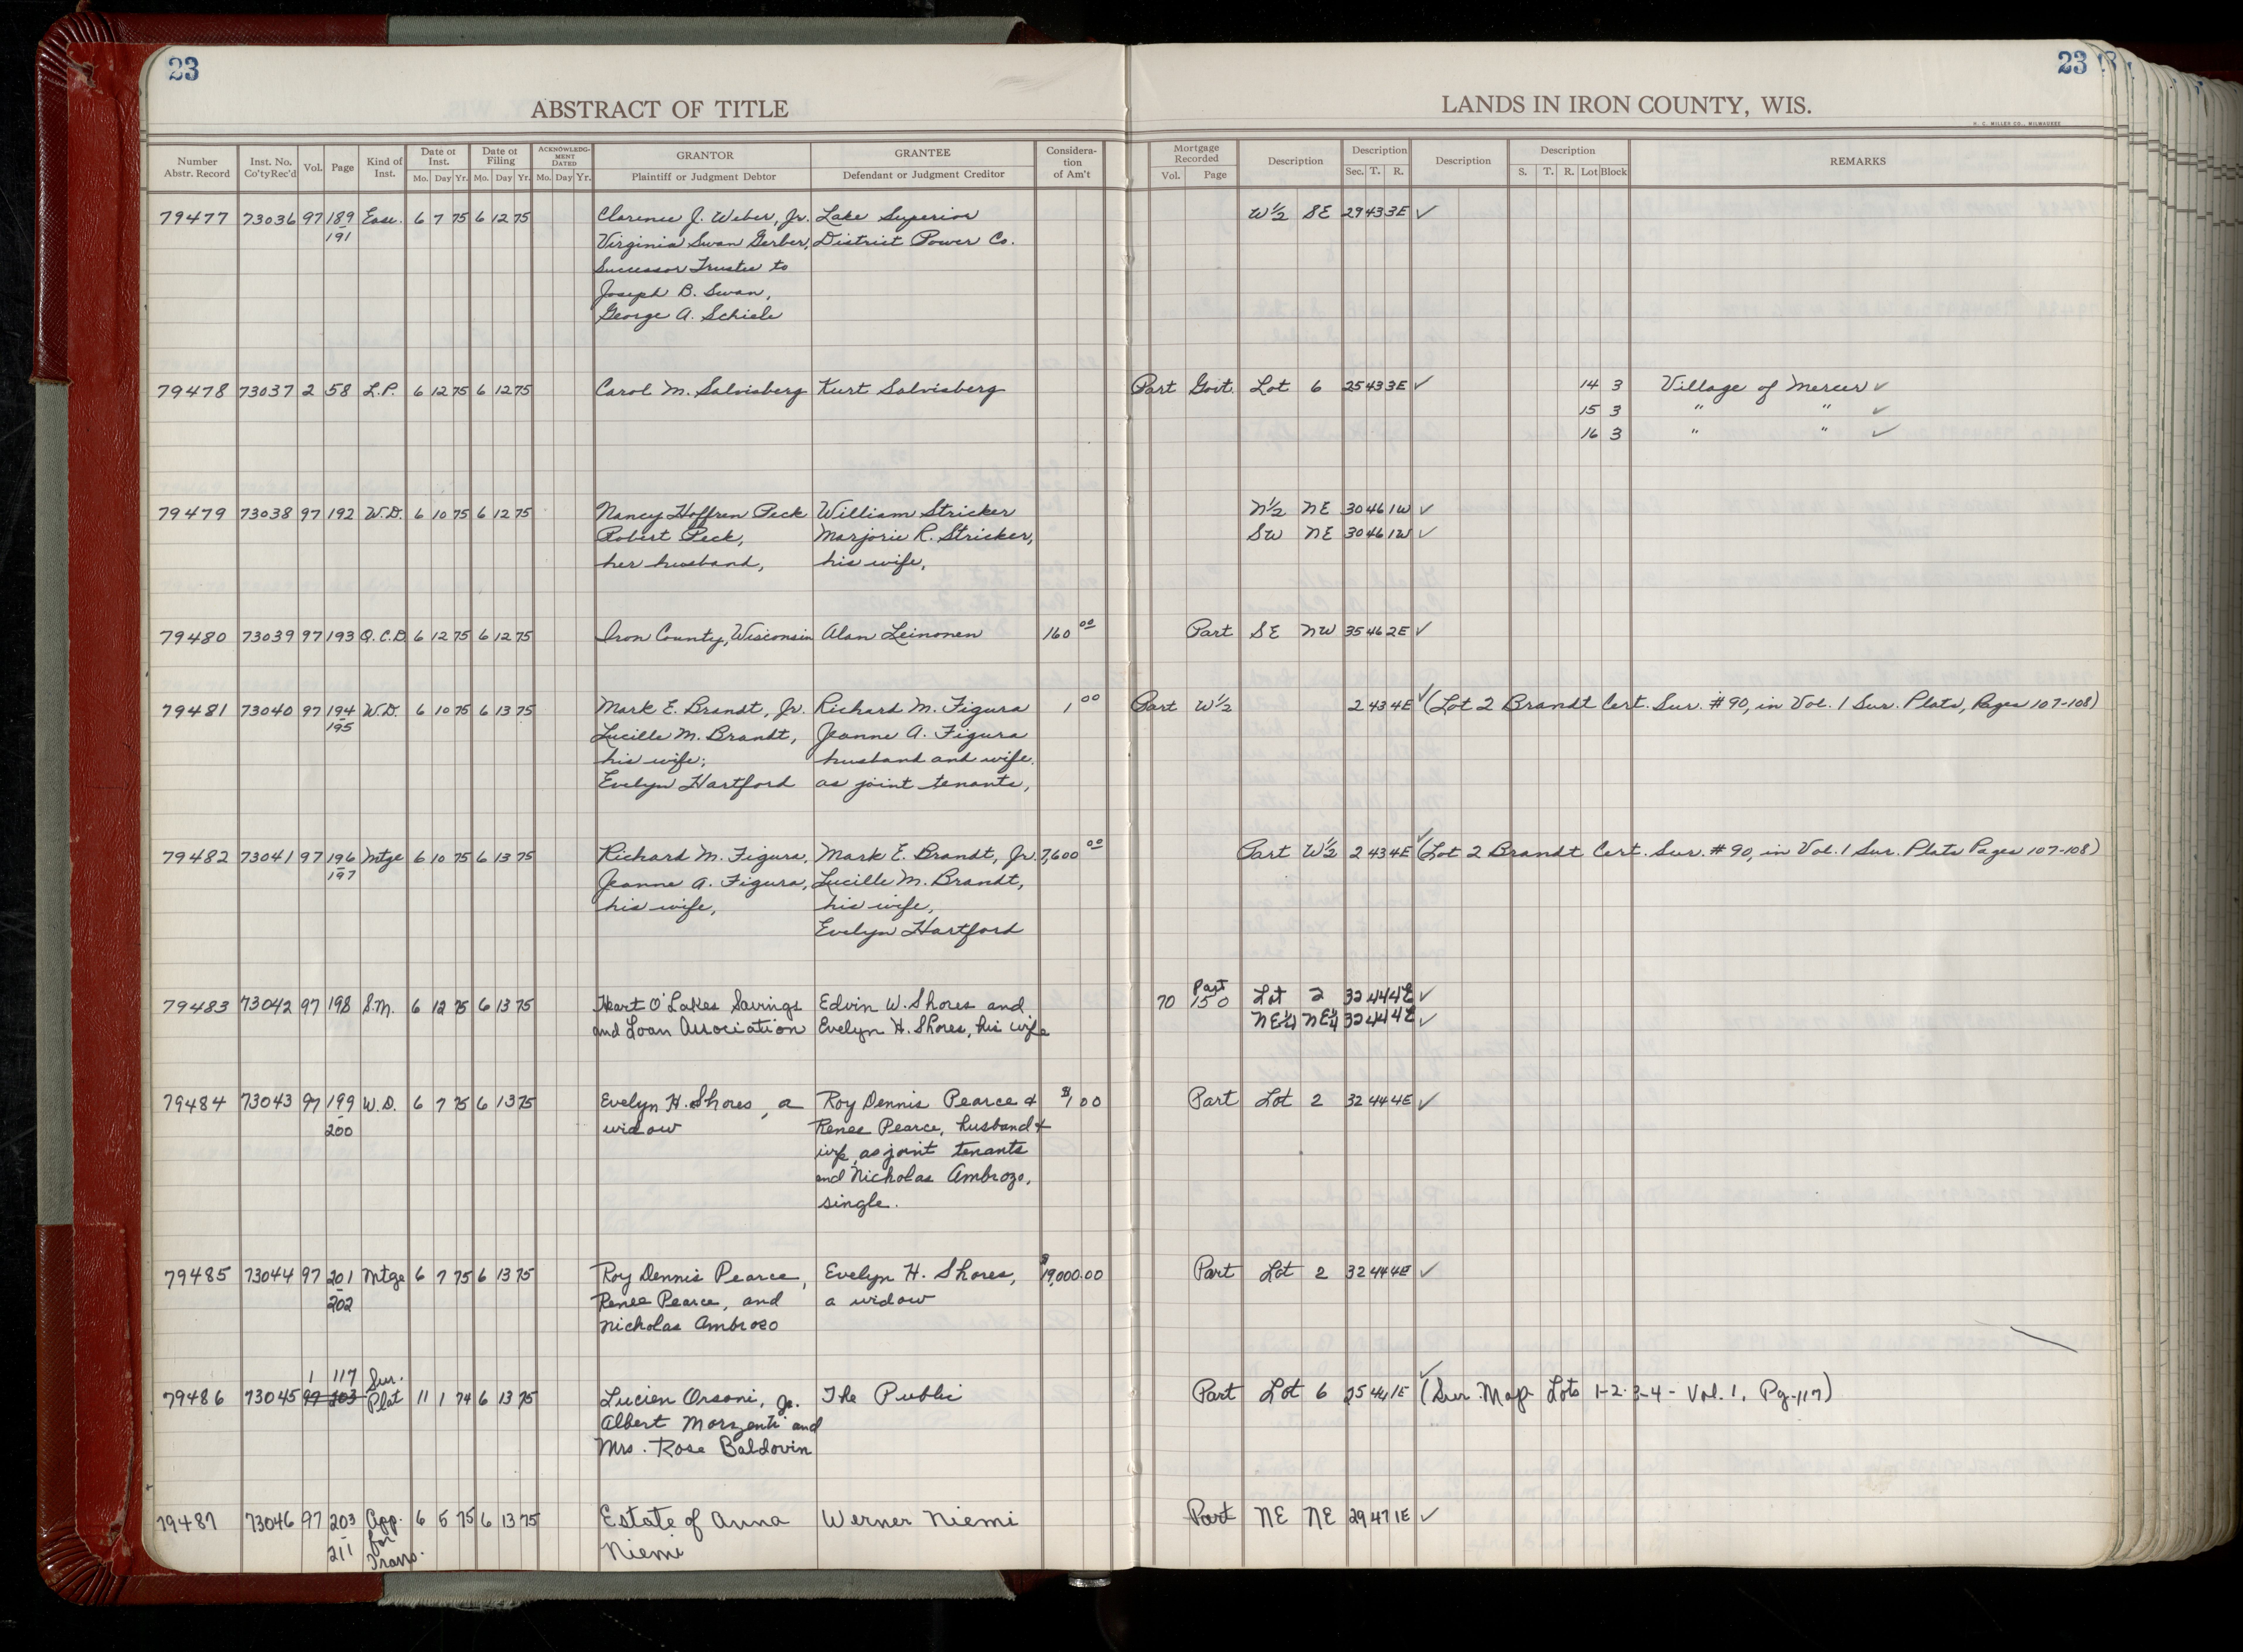 23
23
ABSTRACT OF TITLE
LANDS IN IRON COUNTY, WIS.
H. C. MILLER CO., MILWAUKEE
Number Abstr. Record Inst. No. Co'ty Rec'd Vol. Page Kind of Inst. Date of Inst. Mo. Day Yr. Date of Filing Mo. Day Yr. ACKNOWLEDGMENT DATED Mo. Day Yr. GRANTOR Plaintiff or Judgment Debtor GRANTEE Defendant or Judgment Creditor Consideration of Am't Mortgage Recorded Vol. Page Description Description Sec. T. R. Description Description S. T. R. Lot Block REMARKS
79477 73036 97 189 Ease. 6 7 75 6 12 75 Clarence J. Weber, Jr. Lake Superior W½ SE 29 43 3E ✓
191 Virginia Swan Gerber, District Power Co.
Successor Trustee to
Joseph B. Swan,
George A. Schiele
79478 73037 2 58 L.P. 6 12 75 6 12 75 Carol M. Salvisberg Kurt Salvisberg Part Govt. Lot 6 25 43 3E ✓ 14 3 Village of Mercer ✓
15 3 " " ✓
16 3 " " ✓
79479 73038 97 192 W.D. 6 10 75 6 12 75 Nancy Hoffren Peck William Stricker N½ NE 30 46 1W ✓
Robert Peck, Marjorie R. Stricker, SW NE 30 46 1W ✓
her husband, his wife,
79480 73039 97 193 Q.C.D. 6 12 75 6 12 75 Iron County, Wisconsin Alan Leinonen 160 00 Part SE NW 35 46 2E ✓
79481 73040 97 194 W.D. 6 10 75 6 13 75 Mark E. Brandt, Jr. Richard M. Figura 1 00 Part W½ 2 43 4E ✓ (Lot 2 Brandt Cert. Sur. #90, in Vol. 1 Sur. Plats, Pages 107-108)
195 Lucille M. Brandt, Jeanne A. Figura
his wife; husband and wife.
Evelyn Hartford as joint tenants,
79482 73041 97 196 Mtge 6 10 75 6 13 75 Richard M. Figura, Mark E. Brandt, Jr. 7,600 00 Part W½ 2 43 4E ✓ (Lot 2 Brandt Cert. Sur. #90, in Vol. 1 Sur. Plats Pages 107-108)
197 Jeanne A. Figura, Lucille M. Brandt,
his wife, his wife,
Evelyn Hartford
79483 73042 97 198 S.M. 6 12 75 6 13 75 Heart O'Lakes Savings Edvin W. Shores and 70 150 Part Lot 2 32 44 4E ✓
and Loan Association Evelyn H. Shores, his wife NE¼ NE¼ 32 44 4E ✓
79484 73043 97 199 W.D. 6 7 75 6 13 75 Evelyn H. Shores, a Roy Dennis Pearce & $1 00 Part Lot 2 32 44 4E ✓
200 widow Renee Pearce, husband &
wife, as joint tenants
and Nicholas Ambrozo,
single.
79485 73044 97 201 Mtge 6 7 75 6 13 75 Roy Dennis Pearce, Evelyn H. Shores, $19,000.00 Part Lot 2 32 44 4E ✓
202 Renee Pearce, and a widow
Nicholas Ambrozo
1 117 Sur.
79486 73045 97 203 Plat 11 1 74 6 13 75 Lucien Orsoni, Jr. The Public Part Lot 6 25 44 1E ✓ (Sur Map Lots 1-2-3-4 - Vol. 1, Pg-117)
Albert Morzenti and
Mrs. Rose Baldovin
79487 73046 97 203 App. 6 5 75 6 13 75 Estate of Anna Werner Niemi Part NE NE 29 47 1E ✓
211 for Trans. Niemi